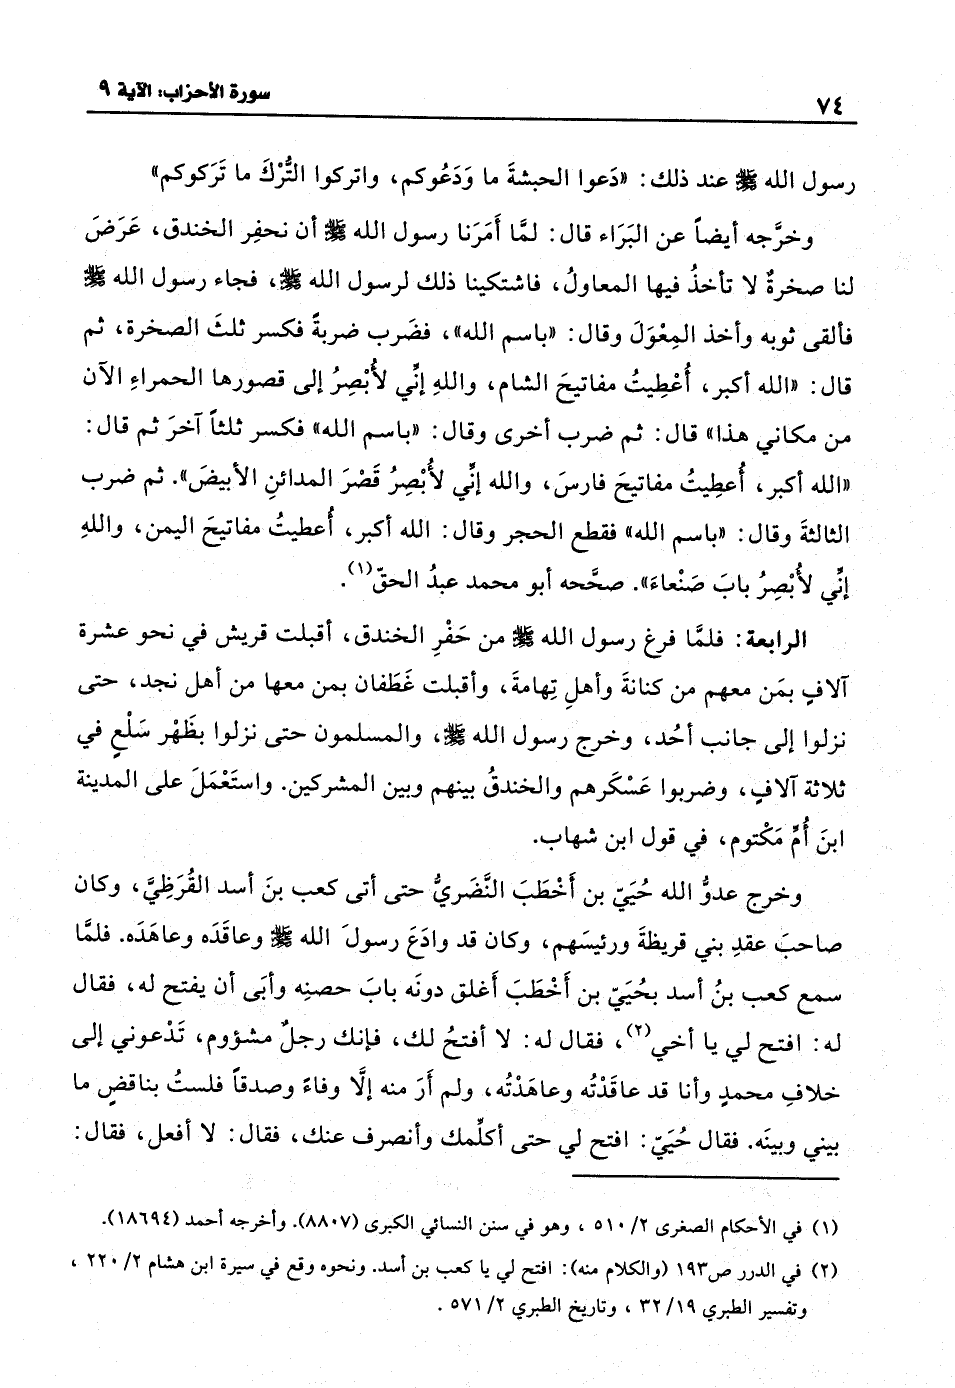 ٧٤
سورة الأحزاب: الآية ٩
رسول الله ﷺ عند ذلك: «دَعوا الحبشةَ ما وَدَعُوكم، واتركوا التُّرْكَ ما تَرَكوكم»
وخرَّجه أيضاً عن البَرَاء قال: لمَّا أَمَرَنا رسول الله ﷺ أن نحفِر الخندق، عَرَضَ
لنا صخرةٌ لا تأخذُ فيها المعاولُ، فاشتكينا ذلك لرسول الله ﷺ، فجاء رسول الله ﷺ
فألقى ثوبه وأخذ المِعْوَلَ وقال: «باسم الله»، فضَرب ضربةً فكسر ثلثَ الصخرة، ثم
قال: «الله أكبر، أُعْطِيتُ مفاتيحَ الشام، واللهِ إنِّي لأُبْصِرُ إلى قصورها الحمراءِ الآن
من مكاني هذا» قال: ثم ضرب أخرى وقال: «باسم الله» فكسر ثلثاً آخرَ ثم قال:
«الله أكبر، أُعطِيتُ مفاتيحَ فارسَ، والله إنِّي لأُبْصِرُ قَصْرَ المدائنِ الأبيضَ». ثم ضرب
الثالثةَ وقال: «باسم الله» فقطع الحجر وقال: الله أكبر، أُعطيتُ مفاتيحَ اليمن، واللهِ
إنِّي لأُبْصِرُ بابَ صَنْعاءَ». صحَّحه أبو محمد عبدُ الحقّ(١).
الرابعة: فلمَّا فرغ رسول الله ﷺ من حَفْرِ الخندق، أقبلت قريش في نحو عشرة
آلافٍ بمَن معهم من كنانةَ وأهلِ تِهامةَ، وأقبلت غَطَفان بمن معها من أهل نجد، حتى
نزلوا إلى جانب أحُد، وخرج رسول الله ﷺ، والمسلمون حتى نزلوا بظَهْر سَلْعٍ في
ثلاثة آلافٍ، وضربوا عَسْكَرهم والخندقُ بينهم وبين المشركين. واستَعْمَلَ على المدينة
ابنَ أُمِّ مَكْتوم، في قول ابن شهاب.
وخرج عدوُّ الله حُيَيّ بن أَخْطَبَ النَّضَريُّ حتى أتى كعب بنَ أسد القُرَظِيَّ، وكان
صاحبَ عقدِ بني قريظةَ ورئيسَهم، وكان قد وادَعَ رسولَ الله ﷺ وعاقَدَه وعاهَدَه. فلمَّا
سمع كعب بنُ أسد بحُيَيّ بن أَخْطَبَ أَغلق دونَه بابَ حصنِه وأبَى أن يفتح له، فقال
له: افتح لي يا أخي(٢)، فقال له: لا أفتحُ لك، فإنك رجلٌ مشؤوم، تَدْعوني إلى
خلافِ محمدٍ وأنا قد عاقَدْتُه وعاهَدْتُه، ولم أَرَ منه إلَّا وفاءً وصدقاً فلستُ بناقضٍ ما
بيني وبينَه. فقال حُيَيّ: افتح لي حتى أكلِّمك وأنصرف عنك، فقال: لا أفعل، فقال:
(١) في الأحكام الصغرى ٢/ ٥١٠ ، وهو في سنن النسائي الكبرى (٨٨٠٧). وأخرجه أحمد (١٨٦٩٤).
(٢) في الدرر ص١٩٣ (والكلام منه): افتح لي يا كعب بن أسد. ونحوه وقع في سيرة ابن هشام ٢/ ٢٢٠ ،
وتفسير الطبري ١٩/ ٣٢ ، وتاريخ الطبري ٢/ ٥٧١ .